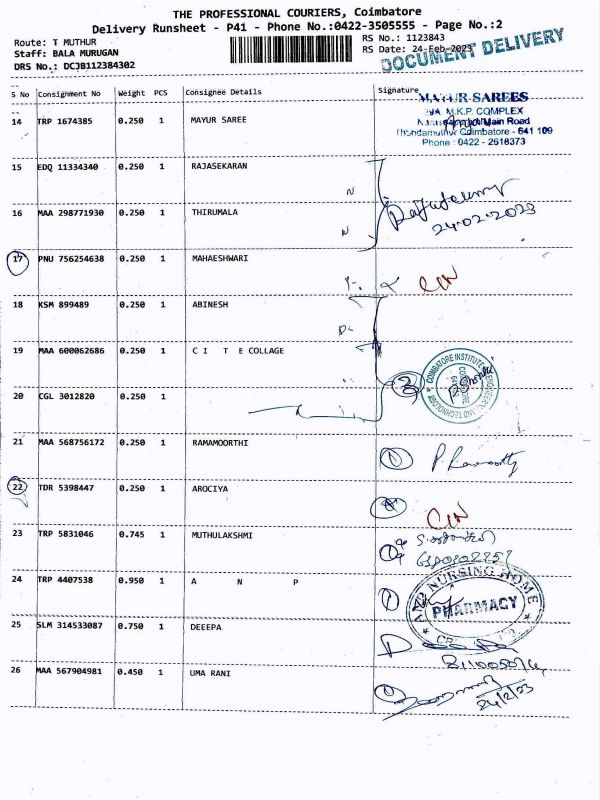 THE PROFESSIONAL COURIERS, Coimbatore
Delivery Runsheet - P41 - Phone No.:0422-3505555 - Page No.:2
Route: T MUTHUR
RS No.: 1123843
Staff: BALA MURUGAN
RS Date: 24-Feb-2023
DRS No.: DCJB112384302
DOCUMENT DELIVERY
S No Consignment No Weight PCS Consignee Details Signature
MAYUR SAREES
M.K.P. COMPLEX
Main Road
Coimbatore - 641 109
Phone : 0422 - 2618373
14 TRP 1674385 0.250 1 MAYUR SAREE
15 EDQ 11334340 0.250 1 RAJASEKARAN
N
16 MAA 298771930 0.250 1 THIRUMALA
24.02.2023
N
17 PNU 756254638 0.250 1 MAHAESHWARI
18 KSM 899489 0.250 1 ABINESH
19 MAA 600062686 0.250 1 C I T E COLLAGE
COIMBATORE INSTITUTE
ENGINEERING AND TECHNOLOGY
3
20 CGL 3012820 0.250 1
21 MAA 568756172 0.250 1 RAMAMOORTHI
22 TDR 5398447 0.250 1 AROCIYA
23 TRP 5831046 0.745 1 MUTHULAKSHMI
24 TRP 4407538 0.950 1 A N P
NURSING HOME
PHARMACY
25 SLM 314533087 0.750 1 DEEEPA
26 MAA 567904981 0.450 1 UMA RANI
24/2/23